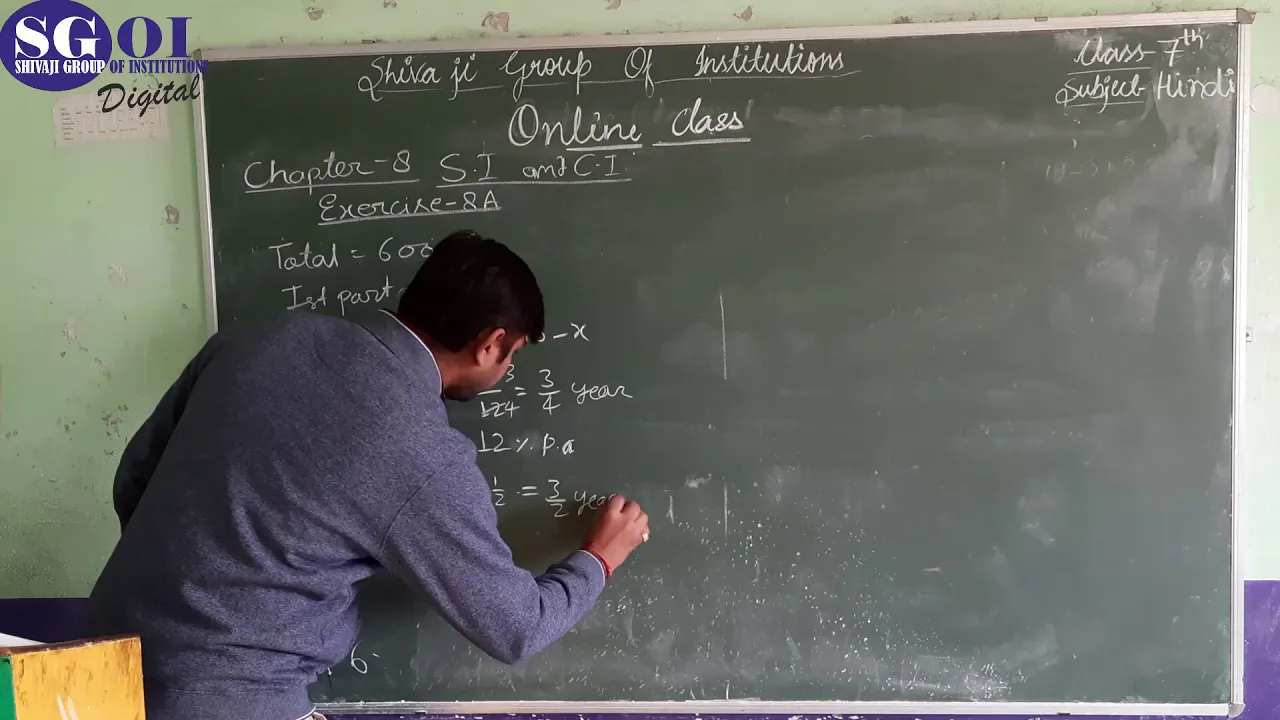 SGOI
SHIVAJI GROUP OF INSTITUTIONS
Digital
Shiva ji Group Of Institutions
Class-7th
Subject- Hindi
Online class
Chapter-8 S.I and C.I.
Exercise-8A
Total = 600
Ist part
- x
3/124 = 3/4 year
12 % p.a
1/2 = 3/2 year
6